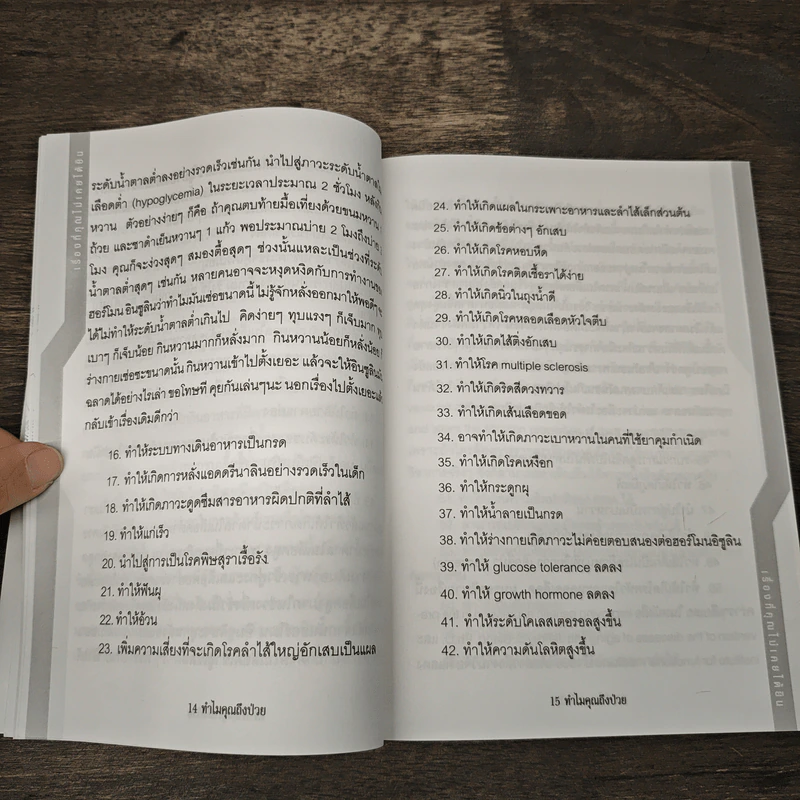 เรื่องที่คุณไม่เคยได้ยิน
ระดับน้ำตาลต่ำลงอย่างรวดเร็วเช่นกัน นำไปสู่ภาวะระดับน้ำตาลใน
เลือดต่ำ (hypoglycemia) ในระยะเวลาประมาณ 2 ชั่วโมง หลังกิน
หวาน ตัวอย่างง่ายๆ ก็คือ ถ้าคุณตบท้ายมื้อเที่ยงด้วยขนมหวาน
ถ้วย และชาดำเย็นหวานๆ 1 แก้ว พอประมาณบ่าย 2 โมงถึงบ่าย
โมง คุณก็จะง่วงสุดๆ สมองตื้อสุดๆ ช่วงนั้นแหละเป็นช่วงที่ระดับ
น้ำตาลต่ำสุดๆ เช่นกัน หลายคนอาจจะหงุดหงิดกับการทำงานของ
ฮอร์โมน อินซูลินว่าทำไมมันเซ่อขนาดนี้ ไม่รู้จักหลั่งออกมาให้พอดีๆ
ได้ไม่ทำให้ระดับน้ำตาลต่ำเกินไป คิดง่ายๆ ทุบแรงๆ ก็เจ็บมาก
เบาๆ ก็เจ็บน้อย กินหวานมากก็หลั่งมาก กินหวานน้อยก็หลั่งน้อย
ร่างกายเซ่อซะขนาดนั้น กินหวานเข้าไปตั้งเยอะ แล้วจะให้อินซูลิน
ฉลาดได้อย่างไรเล่า ขอโทษที คุยกันเล่นๆนะ นอกเรื่องไปตั้งเยอะ
กลับเข้าเรื่องเดิมดีกว่า
16. ทำให้ระบบทางเดินอาหารเป็นกรด
17. ทำให้เกิดการหลั่งแอดดรีนาลินอย่างรวดเร็วในเด็ก
18. ทำให้เกิดภาวะดูดซึมสารอาหารผิดปกติที่ลำไส้
19. ทำให้แก่เร็ว
20. นำไปสู่การเป็นโรคพิษสุราเรื้อรัง
21. ทำให้ฟันผุ
22. ทำให้อ้วน
23. เพิ่มความเสี่ยงที่จะเกิดโรคลำไส้ใหญ่อักเสบเป็นแผล
14 ทำไมคุณถึงป่วย
24. ทำให้เกิดแผลในกระเพาะอาหารและลำไส้เล็กส่วนต้น
25. ทำให้เกิดข้อต่างๆ อักเสบ
26. ทำให้เกิดโรคหอบหืด
27. ทำให้เกิดโรคติดเชื้อราได้ง่าย
28. ทำให้เกิดนิ่วในถุงน้ำดี
29. ทำให้เกิดโรคหลอดเลือดหัวใจตีบ
30. ทำให้เกิดไส้ติ่งอักเสบ
31. ทำให้โรค multiple sclerosis
32. ทำให้เกิดริดสีดวงทวาร
33. ทำให้เกิดเส้นเลือดขอด
34. อาจทำให้เกิดภาวะเบาหวานในคนที่ใช้ยาคุมกำเนิด
35. ทำให้เกิดโรคเหงือก
36. ทำให้กระดูกผุ
37. ทำให้น้ำลายเป็นกรด
38. ทำให้ร่างกายเกิดภาวะไม่ค่อยตอบสนองต่อฮอร์โมนอิซูลิน
39. ทำให้ glucose tolerance ลดลง
40. ทำให้ growth hormone ลดลง
41. ทำให้ระดับโคเลสเตอรอลสูงขึ้น
42. ทำให้ความดันโลหิตสูงขึ้น
15 ทำไมคุณถึงป่วย
เรื่องที่คุณไม่เคยได้ยิน